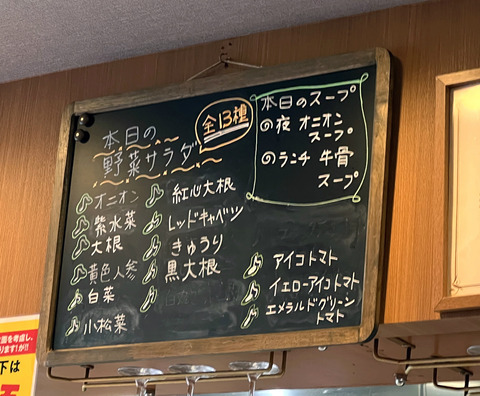 本日の
野菜サラダ
全13種
オニオン
紫水菜
大根
黄色人参
白菜
小松菜
紅心大根
レッドキャベツ
きゅうり
黒大根
アイコトマト
イエローアイコトマト
エメラルドグリーン
トマト
本日のスープ
の夜 オニオン
スープ
のランチ 牛骨
スープ